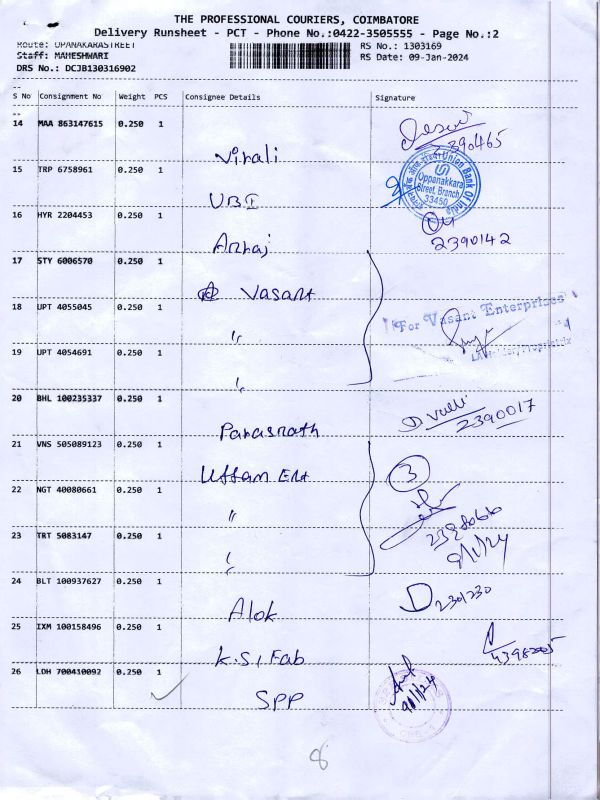 THE PROFESSIONAL COURIERS, COIMBATORE
Delivery Runsheet - PCT - Phone No.:0422-3505555 - Page No.:2
Route: UPANAKARASTREET
Staff: MAHESHWARI
DRS No.: DCJB130316902
RS No.: 1303169
RS Date: 09-Jan-2024
S No Consignment No Weight PCS Consignee Details Signature
14 MAA 863147615 0.250 1
Virali
2390465
15 TRP 6758961 0.250 1
UBI
Union Bank Of India
Oppanakkara
Street, Branch
33450
16 HYR 2204453 0.250 1
2390142
17 STY 6006570 0.250 1
Vasant
18 UPT 4055045 0.250 1
"
For Vasant Enterprises
19 UPT 4054691 0.250 1
"
20 BHL 100235337 0.250 1
Parasnath
D Valli
2390017
21 VNS 505089123 0.250 1
Uttam Ent
3
22 NGT 40080661 0.250 1
"
23 TRT 5083147 0.250 1
"
9/1/24
24 BLT 100937627 0.250 1
Alok
2301230
25 IXM 100158496 0.250 1
K.S, Fab
26 LDH 700410092 0.250 1
SPP
9/1/24
8